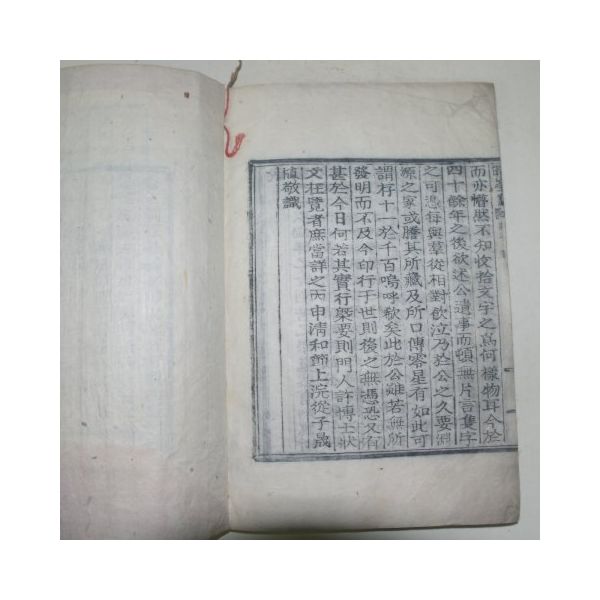 而亦懵然不知收拾文字之爲何樣物耳今於
四十餘年之後欲述公遺事而頓無片言隻字
之可憑每與羣從相對飮泣乃於公之久要淵
源之家或謄其所藏及所口傳零星有如此可
謂存十一於千百嗚呼欷矣此於公雖若無所
發明而不及今印行于世則後之無憑恐又有
甚於今日何若其實行槩要則門人許博士狀
文在覽者庶當詳之丙申淸和節上浣從子晟
植敬識